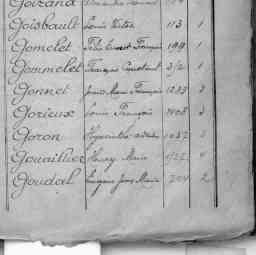 Goisbault Louis Victor 113 1
Gomelet François 199 1
Gommelet François Constant 3/2 1
Gonnet Jean Marie François 1233 3
Gorieux Louis François 1408 3
Goron Hyacinthe 1037 3
Gouailluer Henry Marie 4
Goudal Eugène Jean Marie 704 2